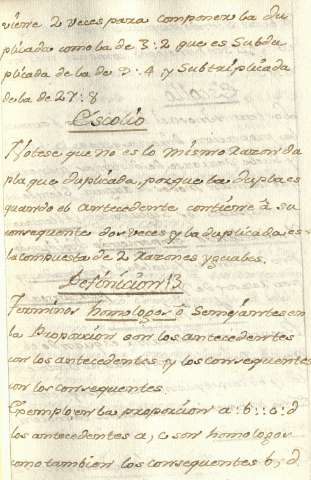 viene 2 veces para componer la du
plicada como la de 3:2 que es Subdu
plicada de la de 9:4 y Subtriplicada
de la de 27:8
Escolio
Notese que no es lo mismo razon du
pla que duplicada, porque la dupla es
quando el antecedente contiene â su
consequente dos veces y la duplicada es
la compuesta de 2 razones yguales.
Definicion 13.
Terminos homologos ô Semejantes en
la Proporsion son los antecedentes
con los antecedentes y los consequentes
con los consequentes
Exemplo, en la proporsion a:b::c:d
los antecedentes a, c son homologos
como tambien los consequentes b, d.